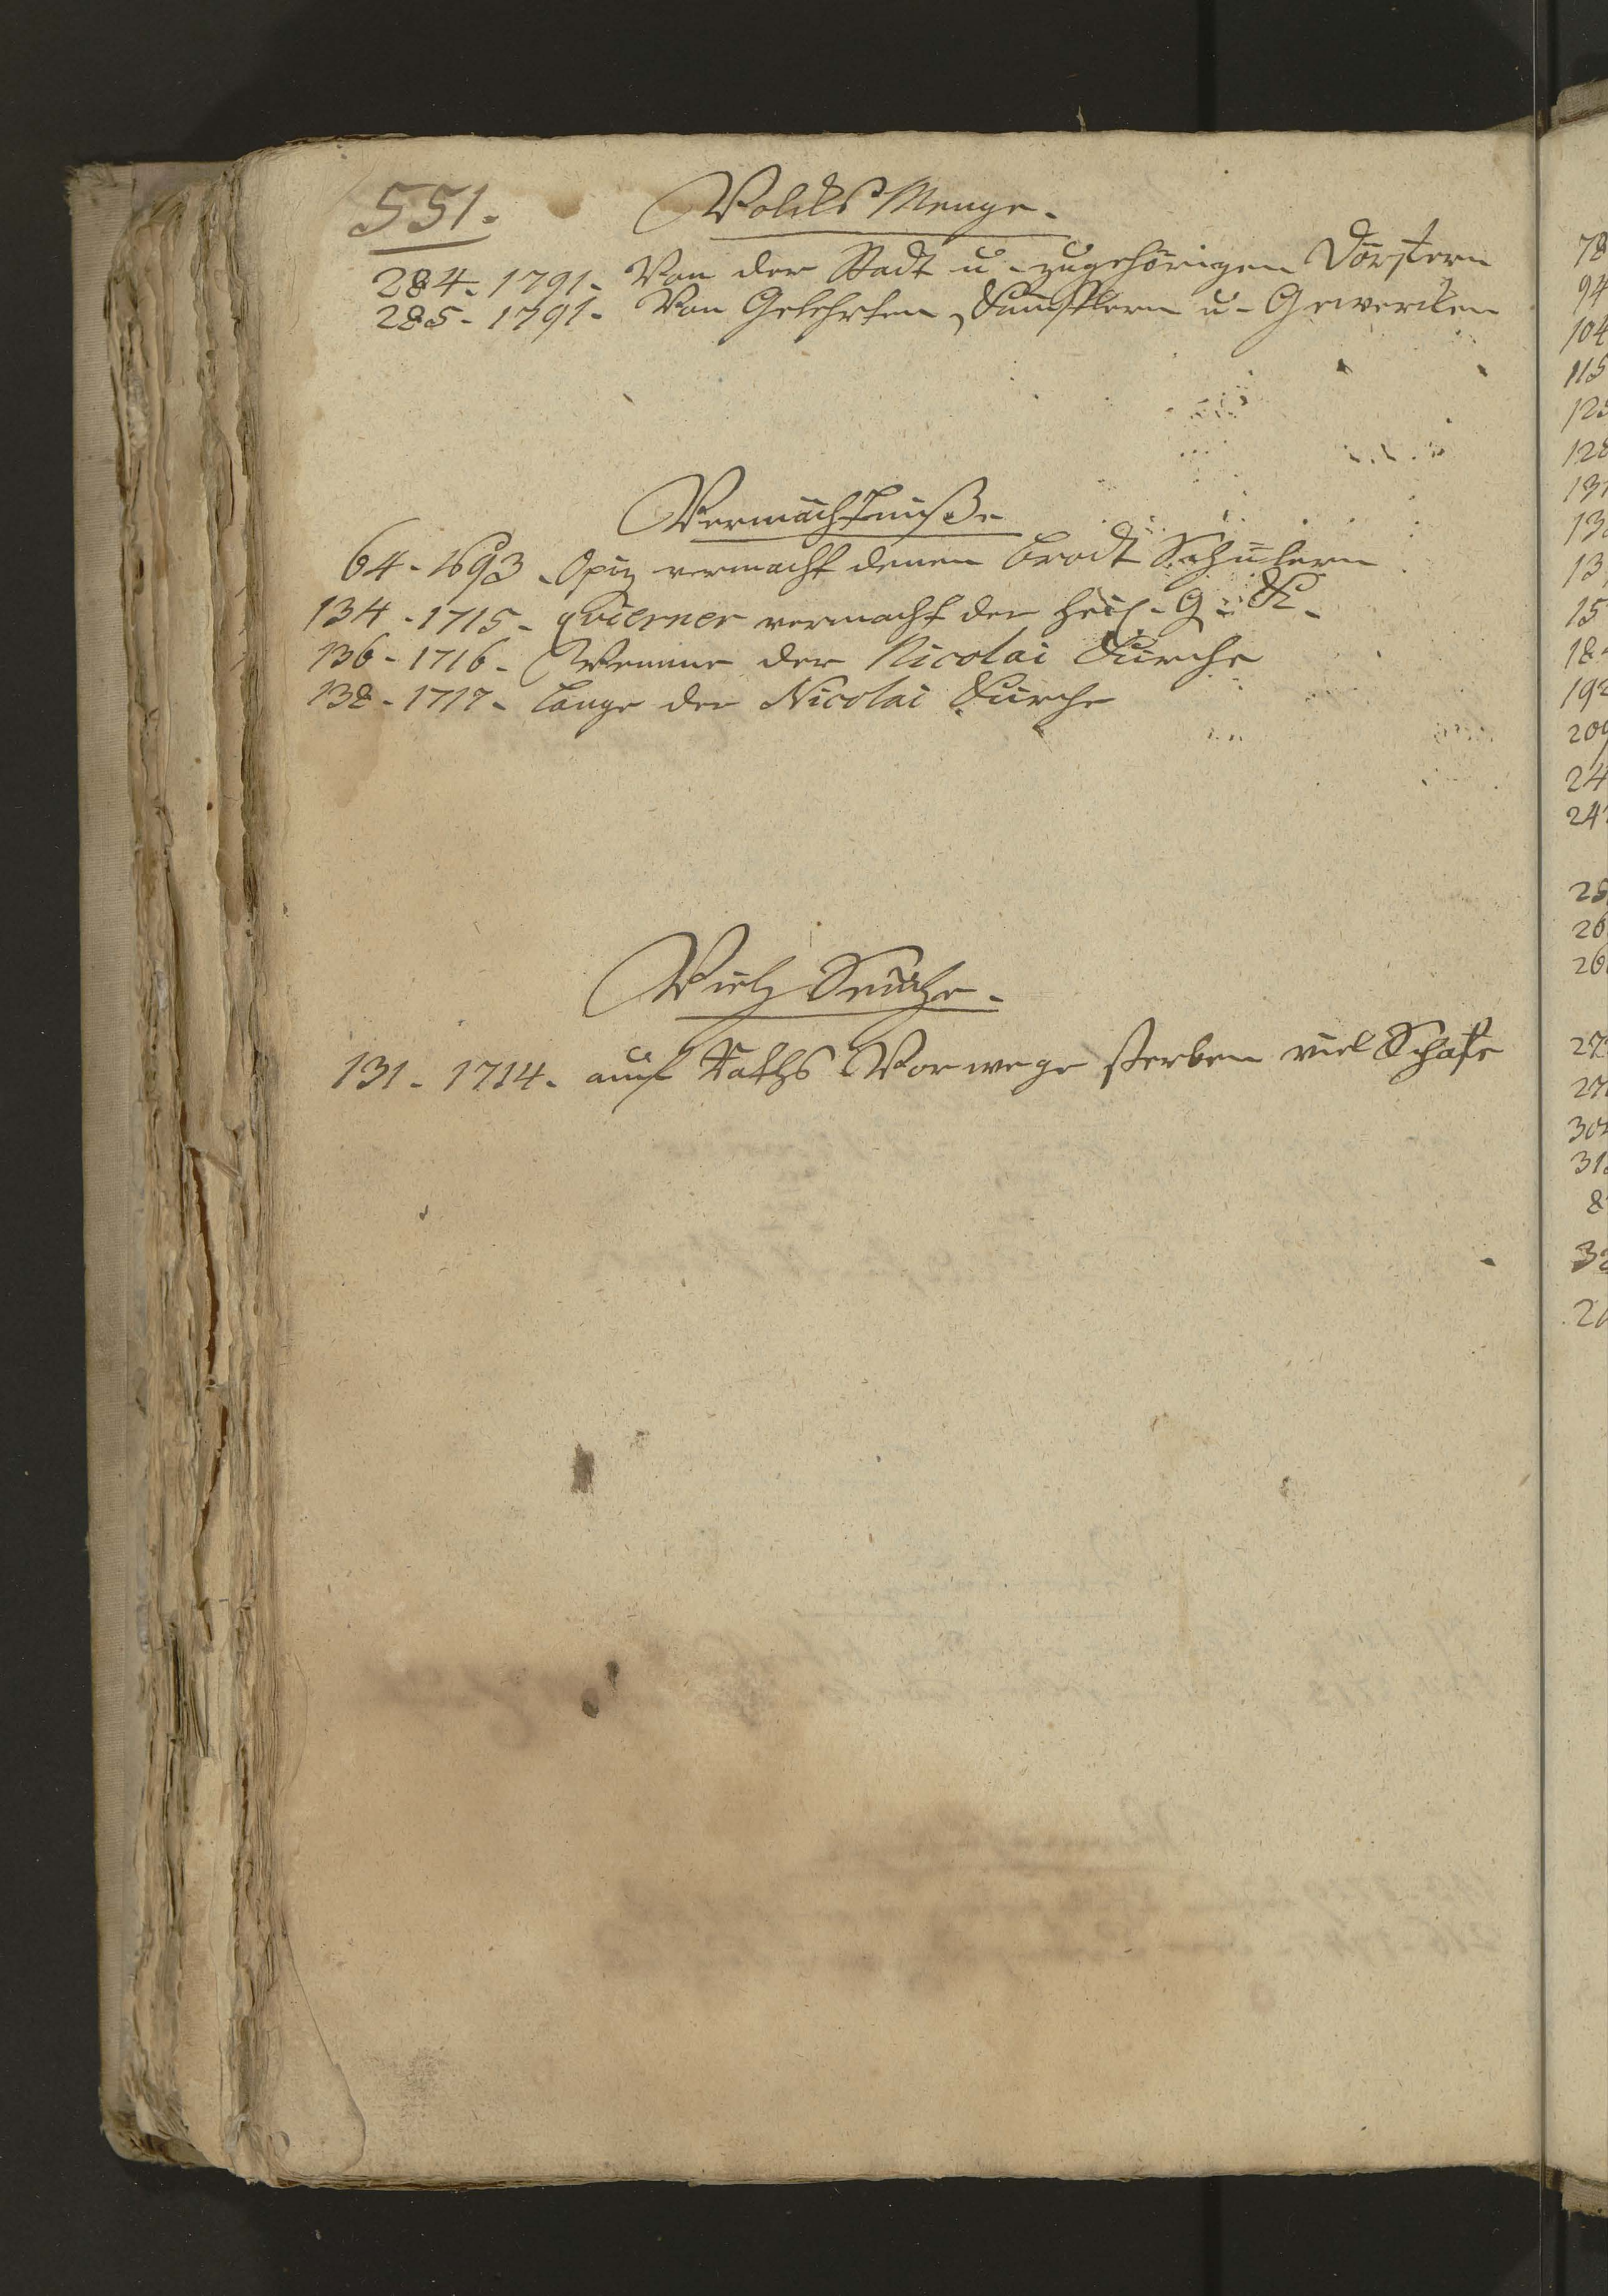 551.
Volcks Menge.
284. 1791. Von der Stadt u. zugehörigen Dörffern
285. 1791. Von Gelehrten, Künstlern u. Gewercken
Vermächtniße
64. 1693. Opiz vermacht denen Brodt Schülern
134. 1715. vermacht der Heil. G. K.
136. 1716. der Nicolai Kirche
138. 1717. Lange der Nicolai Kirche
Vieh Seuche.
131. 1714. auf Raths Vorwege sterben viel Schafe